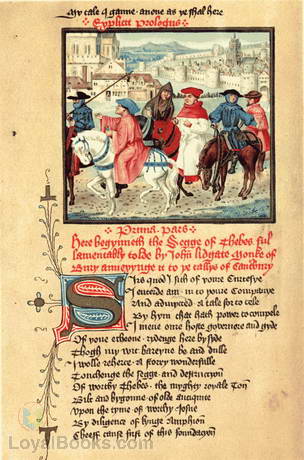 My tale I ganne anone as ye shal here
Explicit Prologus
Prima Pars
Here begynneth the Segge of Thebes ful
lamentably tolde by John Lidgate Monke of
Bury anneyynge it to ye tallys of Canterbury
Sirs quod I sith of youre curtesye
I entrede am in to youre Companye
And admytted a tale for to telle
By hym that hath power to compelle
I mene oure hoste governere and gyde
Of youre echone ridenge here by side
Thogh my wit bareyne be and dulle
I wolle reherce a story wonderfulle
Touchenge the segge and destruccyon
Of worthy Thebes the myghty royale Ton
Bilt and begonne of olde antiquite
Upon the tyme of worthy Josue
By diligence of kynge Amphion
Cheeff cause first of this foundacyon
LoyalBooks.com